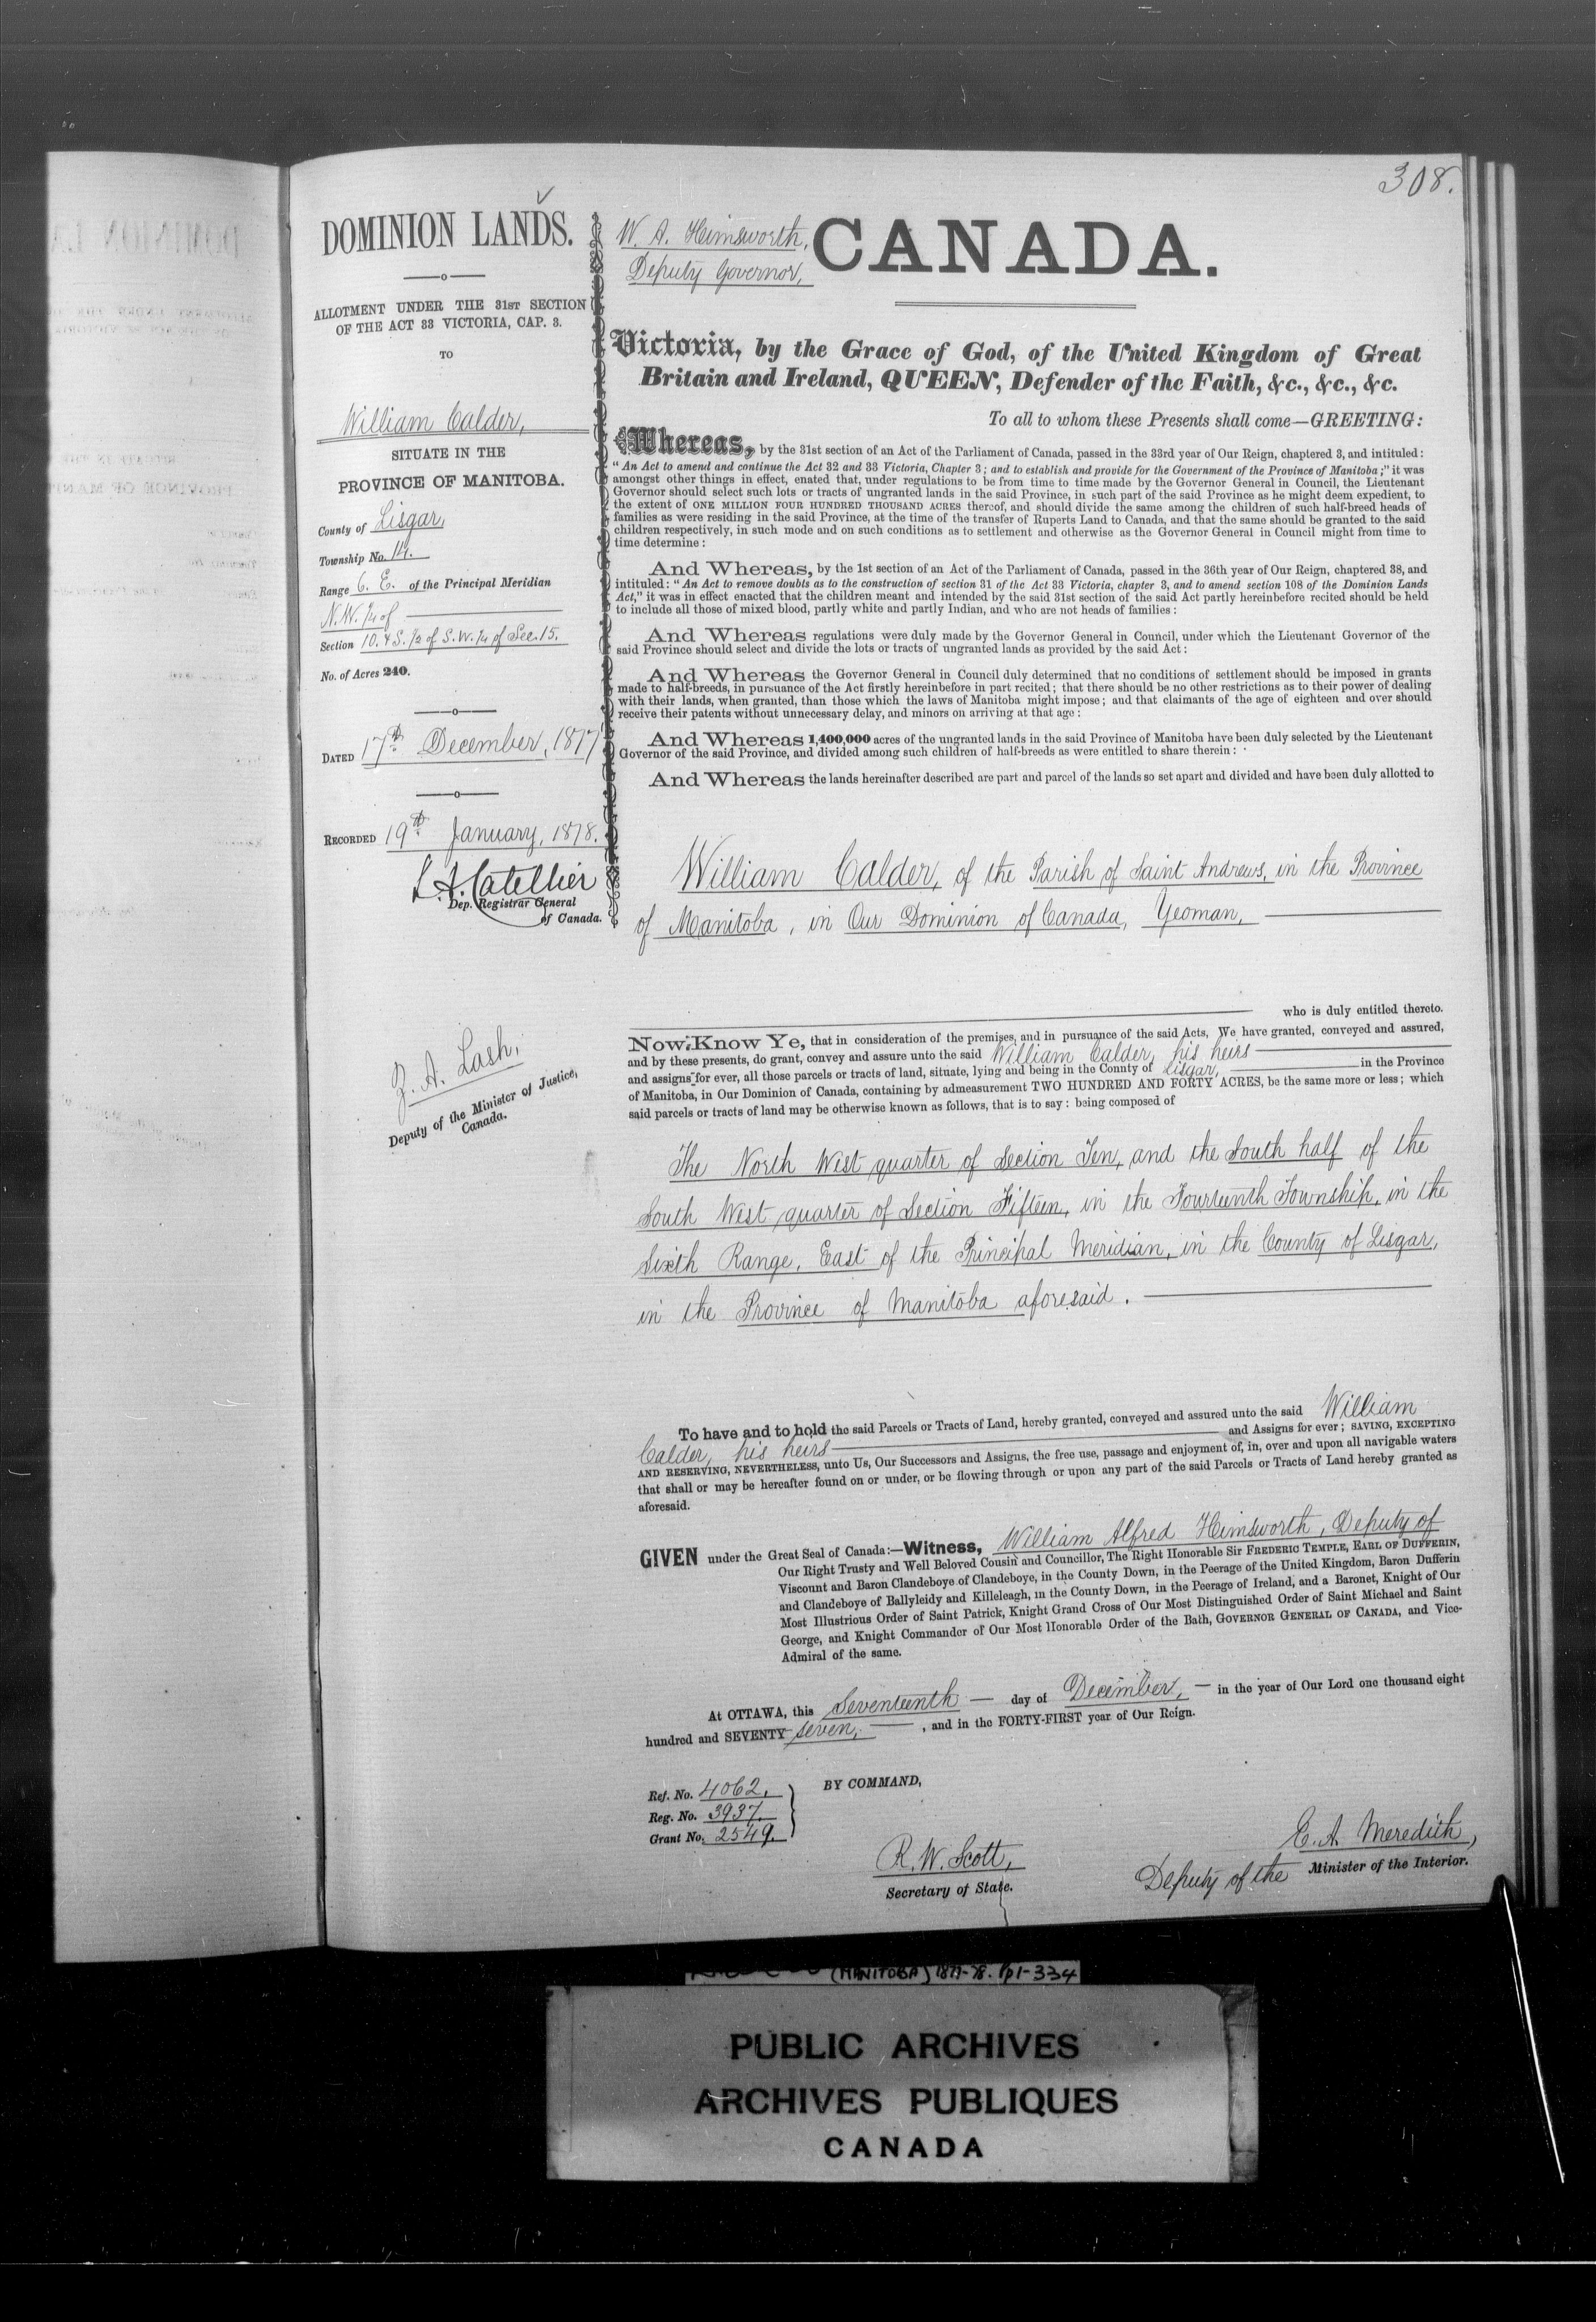 308.
DOMINION LANDS.
ALLOTMENT UNDER THE 31ST SECTION
OF THE ACT 33 VICTORIA, CAP. 3.
TO
William Calder,
SITUATE IN THE
PROVINCE OF MANITOBA.
County of Lisgar,
Township No. 14.
Range 6. E. of the Principal Meridian
N.W. 1/4 of
Section 10. & S. 1/2 of S.W. 1/4 of Sec. 15.
No. of Acres 240.
DATED 17th December, 1877
RECORDED 19th January, 1878.
L. A. Catellier
Dep. Registrar General
of Canada.
Z. A. Lash,
Deputy of the Minister of Justice,
Canada.
W. A. Himsworth,
Deputy Governor,
CANADA.
Victoria, by the Grace of God, of the United Kingdom of Great
Britain and Ireland, QUEEN, Defender of the Faith, &c., &c., &c.
To all to whom these Presents shall come—GREETING:
Whereas, by the 31st section of an Act of the Parliament of Canada, passed in the 33rd year of Our Reign, chaptered 3, and intituled:
"An Act to amend and continue the Act 32 and 33 Victoria, Chapter 3; and to establish and provide for the Government of the Province of Manitoba;" it was
amongst other things in effect, enated that, under regulations to be from time to time made by the Governor General in Council, the Lieutenant
Governor should select such lots or tracts of ungranted lands in the said Province, in such part of the said Province as he might deem expedient, to
the extent of ONE MILLION FOUR HUNDRED THOUSAND ACRES thereof, and should divide the same among the children of such half-breed heads of
families as were residing in the said Province, at the time of the transfer of Ruperts Land to Canada, and that the same should be granted to the said
children respectively, in such mode and on such conditions as to settlement and otherwise as the Governor General in Council might from time to
time determine:
And Whereas, by the 1st section of an Act of the Parliament of Canada, passed in the 36th year of Our Reign, chaptered 38, and
intituled: "An Act to remove doubts as to the construction of section 31 of the Act 33 Victoria, chapter 3, and to amend section 108 of the Dominion Lands
Act," it was in effect enacted that the children meant and intended by the said 31st section of the said Act partly hereinbefore recited should be held
to include all those of mixed blood, partly white and partly Indian, and who are not heads of families:
And Whereas regulations were duly made by the Governor General in Council, under which the Lieutenant Governor of the
said Province should select and divide the lots or tracts of ungranted lands as provided by the said Act:
And Whereas the Governor General in Council duly determined that no conditions of settlement should be imposed in grants
made to half-breeds, in pursuance of the Act firstly hereinbefore in part recited; that there should be no other restrictions as to their power of dealing
with their lands, when granted, than those which the laws of Manitoba might impose; and that claimants of the age of eighteen and over should
receive their patents without unnecessary delay, and minors on arriving at that age:
And Whereas 1,400,000 acres of the ungranted lands in the said Province of Manitoba have been duly selected by the Lieutenant
Governor of the said Province, and divided among such children of half-breeds as were entitled to share therein:
And Whereas the lands hereinafter described are part and parcel of the lands so set apart and divided and have been duly allotted to
William Calder, of the Parish of Saint Andrews, in the Province
of Manitoba, in Our Dominion of Canada, Yeoman,
who is duly entitled thereto.
Now Know Ye, that in consideration of the premises, and in pursuance of the said Acts, We have granted, conveyed and assured,
and by these presents, do grant, convey and assure unto the said William Calder, his heirs
and assigns for ever, all those parcels or tracts of land, situate, lying and being in the County of Lisgar, in the Province
of Manitoba, in Our Dominion of Canada, containing by admeasurement TWO HUNDRED AND FORTY ACRES, be the same more or less; which
said parcels or tracts of land may be otherwise known as follows, that is to say: being composed of
The North West quarter of Section Ten, and the South half of the
South West quarter of Section Fifteen, in the Fourteenth Township, in the
Sixth Range, East of the Principal Meridian, in the County of Lisgar,
in the Province of Manitoba aforesaid.
To have and to hold the said Parcels or Tracts of Land, hereby granted, conveyed and assured unto the said William
Calder, his heirs and Assigns for ever; SAVING, EXCEPTING
AND RESERVING, NEVERTHELESS, unto Us, Our Successors and Assigns, the free use, passage and enjoyment of, in, over and upon all navigable waters
that shall or may be hereafter found on or under, or be flowing through or upon any part of the said Parcels or Tracts of Land hereby granted as
aforesaid.
GIVEN under the Great Seal of Canada:—Witness, William Alfred Himsworth, Deputy of
Our Right Trusty and Well Beloved Cousin and Councillor, The Right Honorable Sir FREDERIC TEMPLE, EARL OF DUFFERIN,
Viscount and Baron Clandeboye of Clandeboye, in the County Down, in the Peerage of the United Kingdom, Baron Dufferin
and Clandeboye of Ballyleidy and Killeleagh, in the County Down, in the Peerage of Ireland, and a Baronet, Knight of Our
Most Illustrious Order of Saint Patrick, Knight Grand Cross of Our Most Distinguished Order of Saint Michael and Saint
George, and Knight Commander of Our Most Honorable Order of the Bath, GOVERNOR GENERAL OF CANADA, and Vice-
Admiral of the same.
At OTTAWA, this Seventeenth — day of December, — in the year of Our Lord one thousand eight
hundred and SEVENTY seven, — , and in the FORTY-FIRST year of Our Reign.
Ref. No. 4062.
Reg. No. 3937.
Grant No. 2549.
BY COMMAND,
R. W. Scott,
Secretary of State.
E. A. Meredith,
Deputy of the Minister of the Interior.
(MANITOBA) 1877-78. pp1-334
PUBLIC ARCHIVES
ARCHIVES PUBLIQUES
CANADA